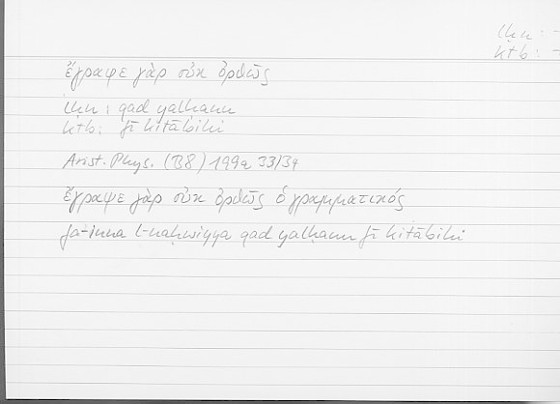 lḥn : -
ktb : -
ἔγραψε γὰρ οὐκ ὀρθῶς
lḥn : qad yalḥanu
ktb : fī kitābihi
Arist. Phys. (B8) 199a 33/34
ἔγραψε γὰρ οὐκ ὀρθῶς ὁ γραμματικός
fa-inna l-naḥwiyya qad yalḥanu fī kitābihi